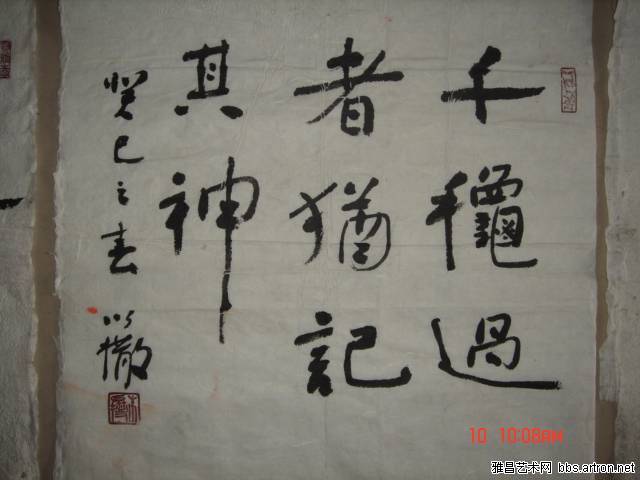 千穐過
者猶記
其神
癸巳之春
以撤
10 10:08AM
雅昌艺术网 bbs.artron.net